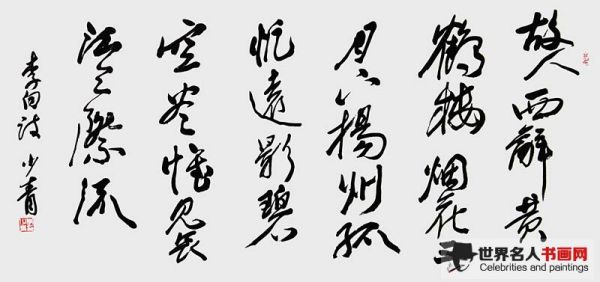 故人西辭黄
鶴楼烟花三
月下揚州孤
帆遠影碧
空尽惟见长
江天際流
李白诗 少青
世界名人书画网
Celebrities and paintings